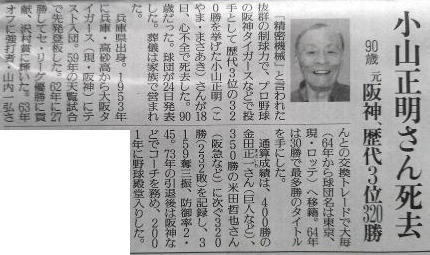 小山正明さん死去
90歳、元阪神、歴代3位320勝
「精密機械」と言われた
抜群の制球力で、プロ野球
の阪神タイガースなどで投
手として歴代3位の32
0勝を挙げた小山正明(こ
やま・まさあき)さんが18
日、心不全で死去した。90
歳だった。球団が24日発表
した。葬儀は家族で営まれ
た。
兵庫県出身。1953年
に兵庫・高砂高から大阪タ
イガース(現・阪神)にテ
スト入団。59年の天覧試合
で先発登板した。62年に27
勝してセ・リーグ優勝に貢
献、沢村賞に輝いた。63年
オフに強打者・山内一弘さ
んとの交換トレードで大毎
(64年から球団名は東京、
現・ロッテ)へ移籍。64年
は30勝で最多勝のタイトル
を手にした。
通算成績は、400勝の
金田正一さん(巨人など)、
350勝の米田哲也さん
(阪急など)に次ぐ320
勝(232敗)を記録し、3
159奪三振、防御率2・
45。73年の引退後は阪神な
どでコーチを務め、200
1年に野球殿堂入りした。